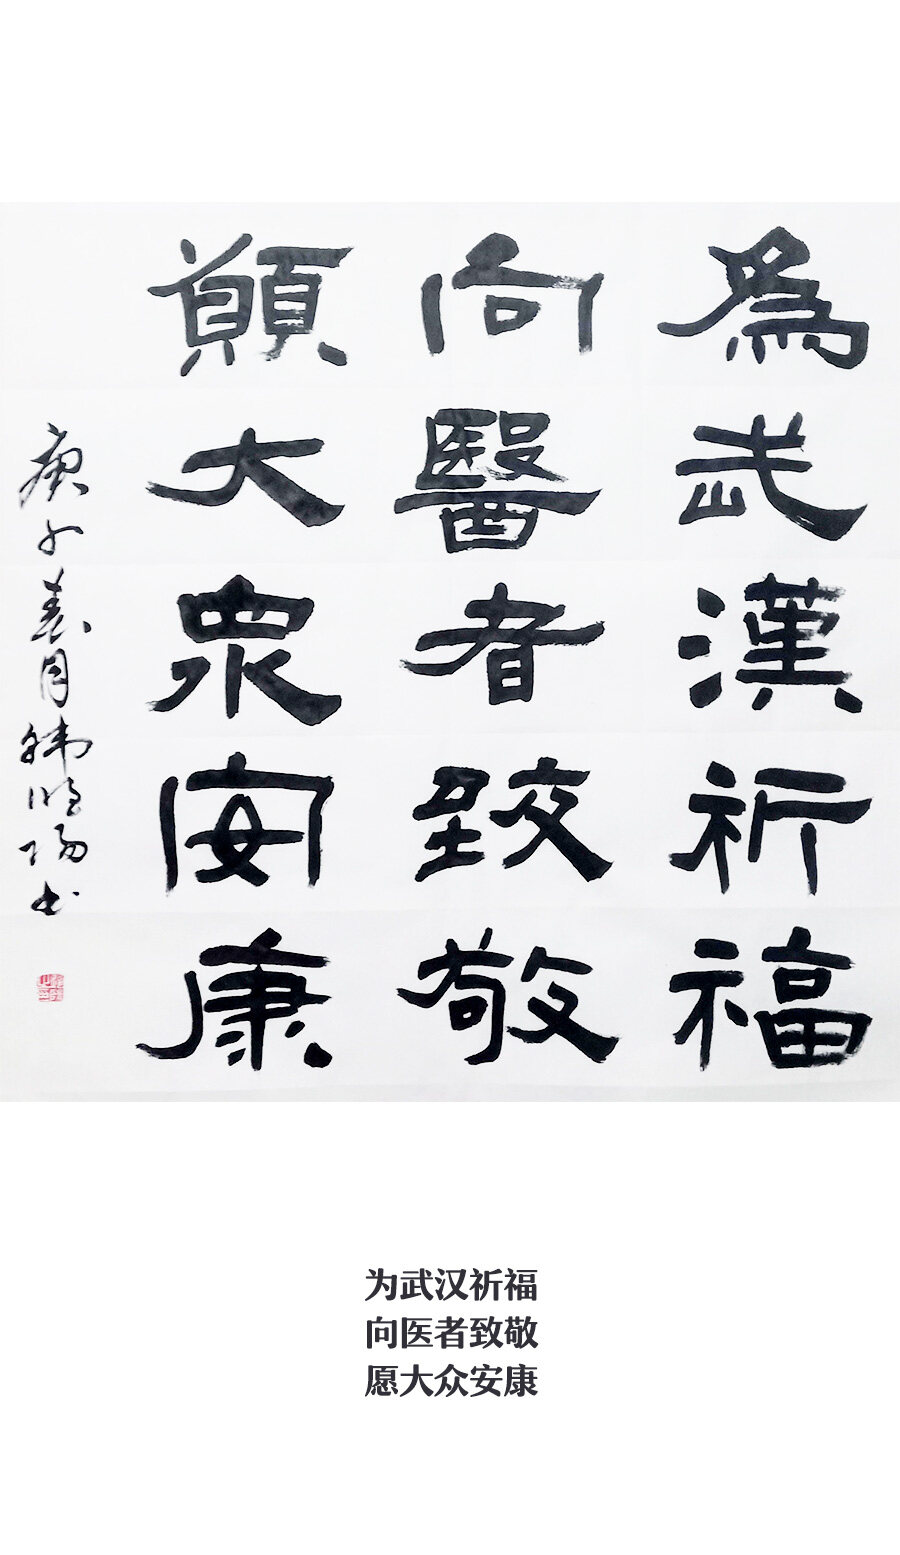 為武漢祈福
向醫者致敬
願大眾安康
庚子春月韩临阳书
为武汉祈福
向医者致敬
愿大众安康